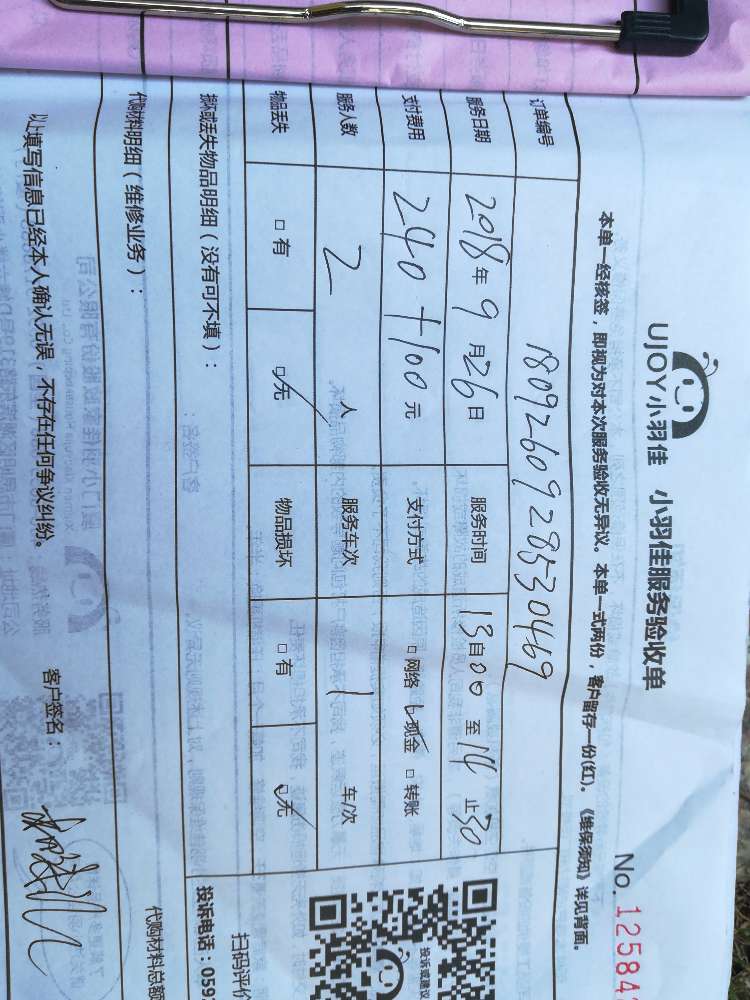 UJOY小羽佳 小羽佳服务验收单
No. 12584
本单一经核签，即视为对本次服务验收无异议。本单一式两份，客户留存一份(红)。《维保须知》详见背面。
订单编号 1809260928530469
服务日期 2018年9月26日 服务时间 13自00至14止30
支付费用 240+100元 支付方式 □网络 ☑现金 □转账
服务人数 2人 服务车次 1 车/次
物品丢失 □有 ☑无 物品损坏 □有 ☑无
损坏或丢失物品明细（没有可不填）：
代购材料明细（维修业务）：
以上填写信息已经本人确认无误，不存在任何争议纠纷。
客户签名：
投诉或建议
扫码评价
投诉电话：059
代购材料总额